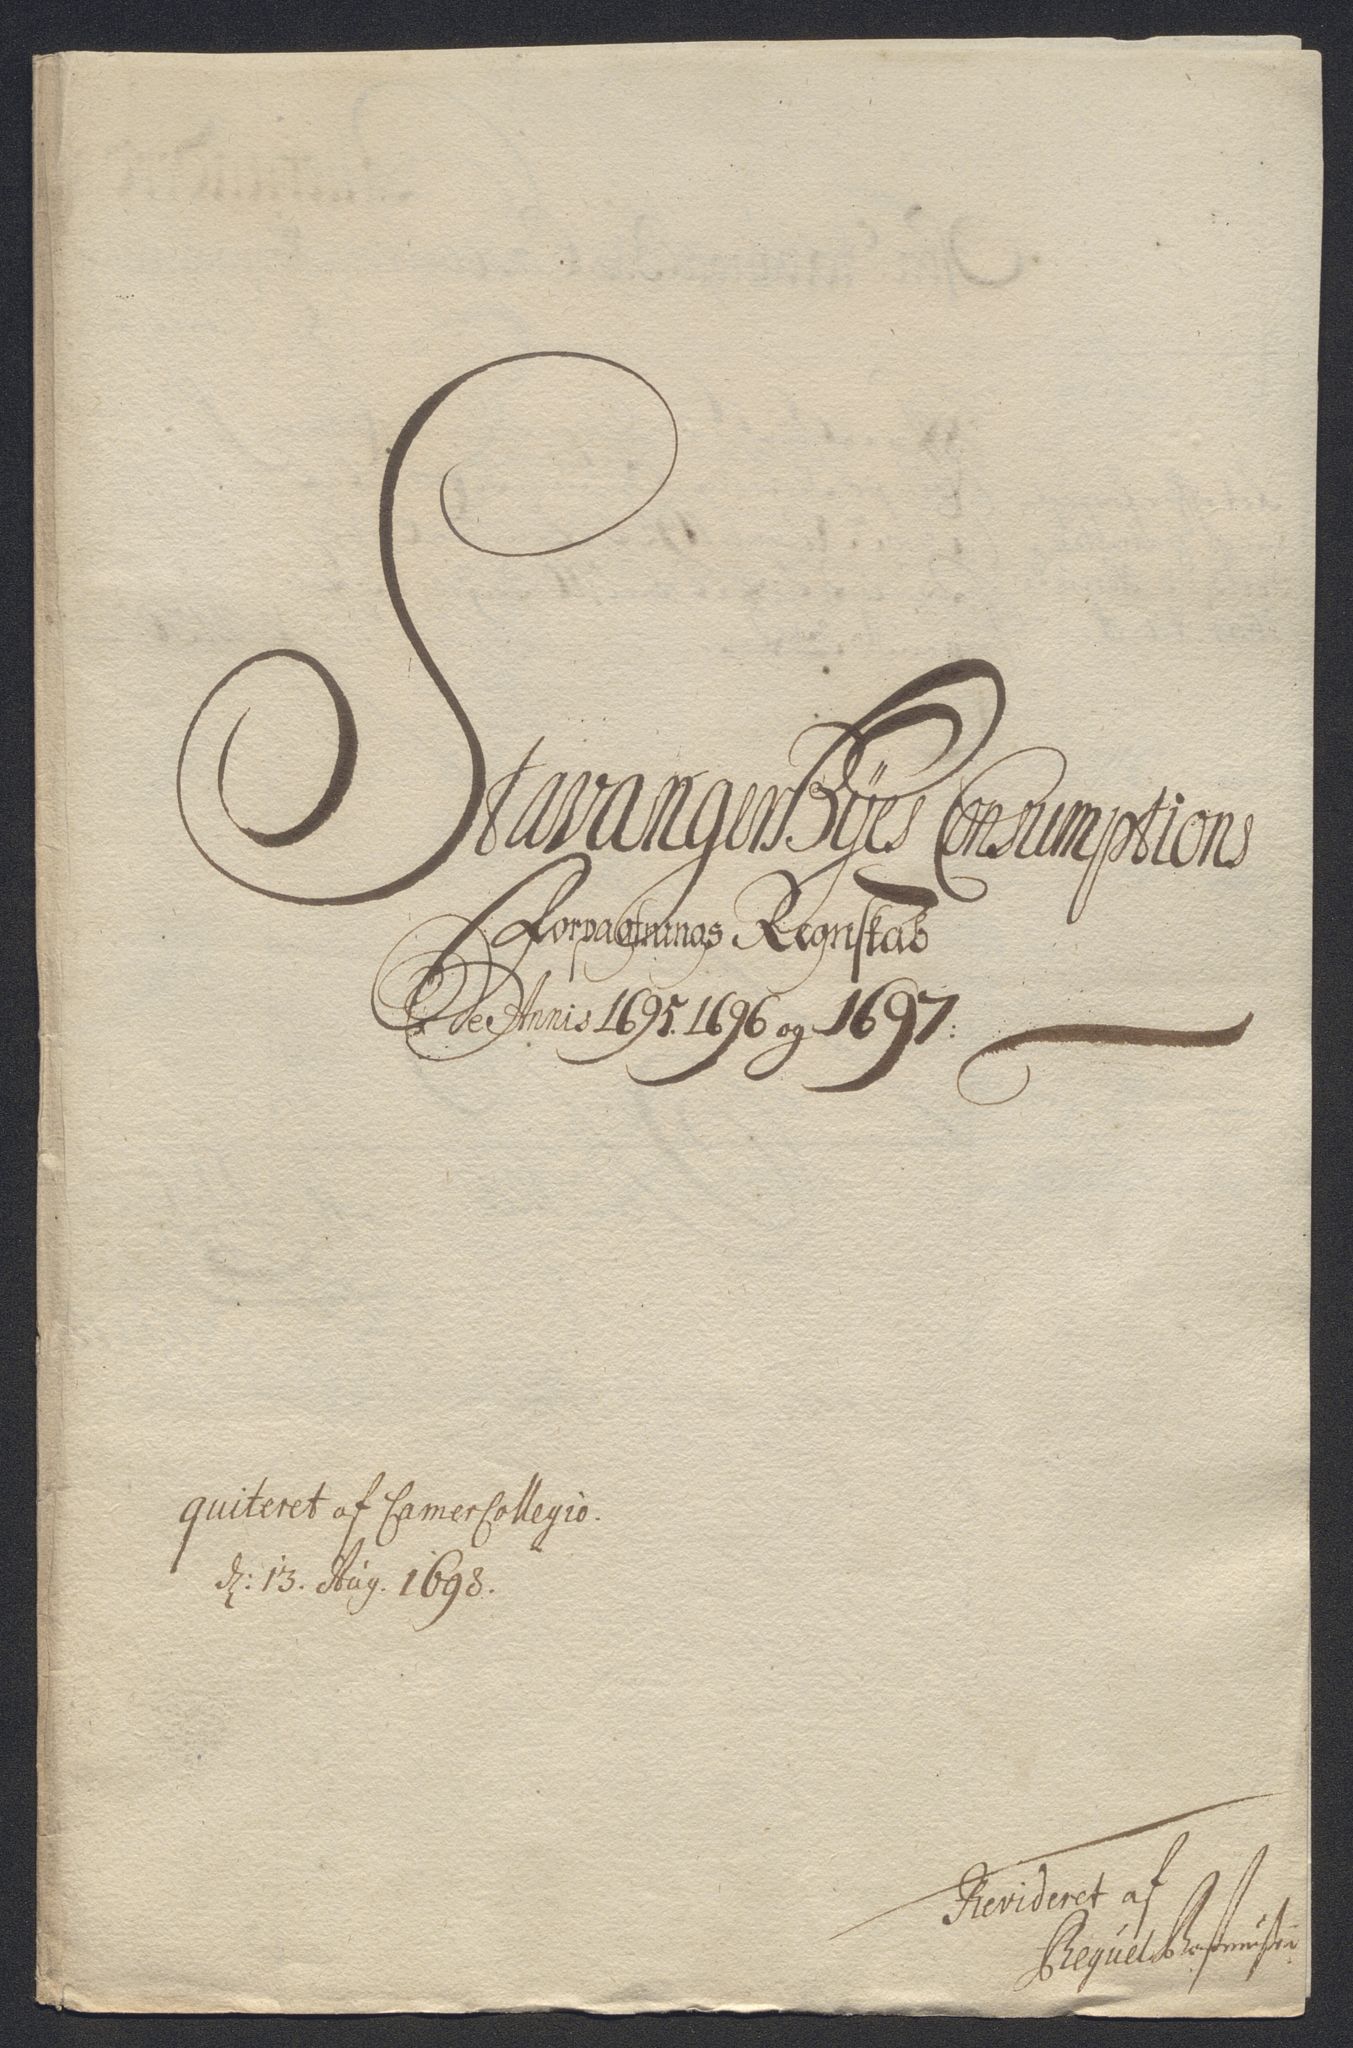 Stavangers Byes Consumptions
Forpagtnings Regnskab
de Annis 1695. 1696 og 1697:
quiteret af Camer Collegio.
d: 13. Aug. 1698.
Revideret af